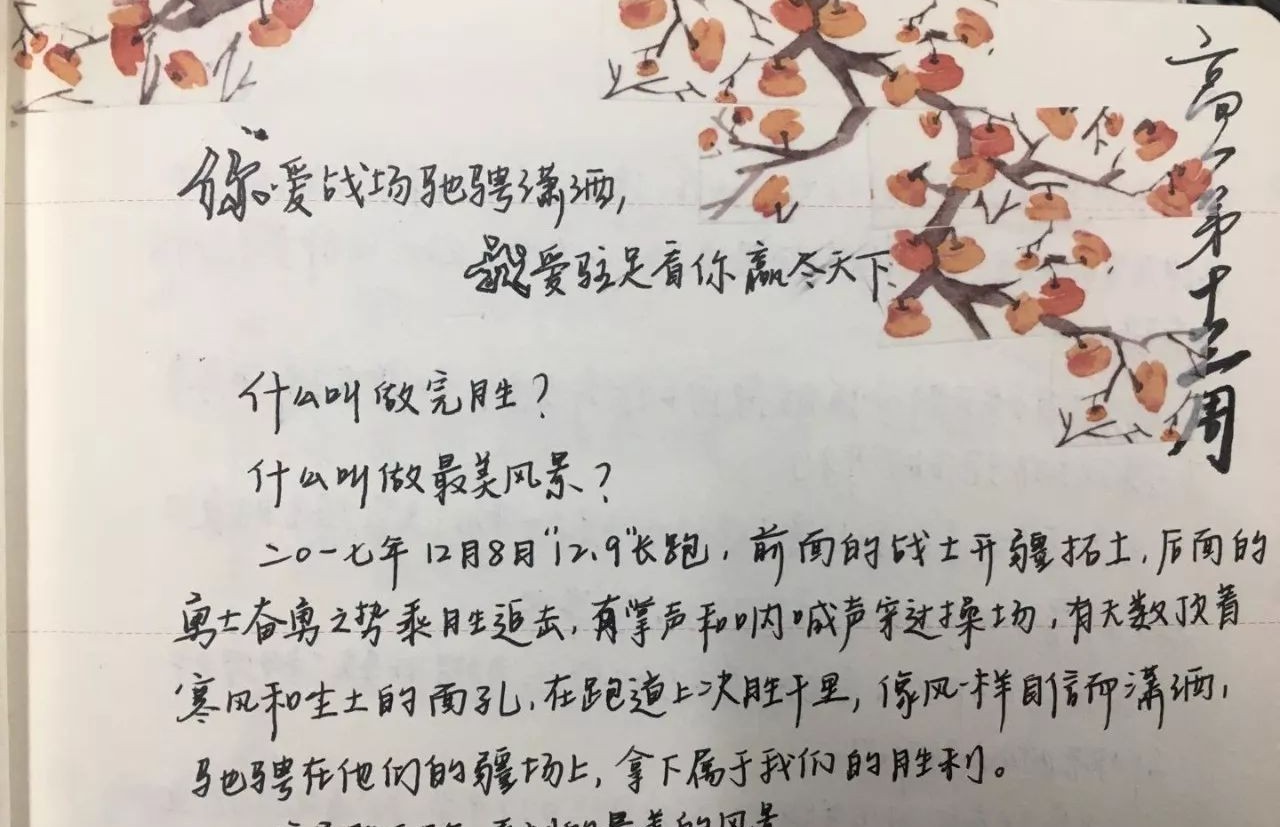 高一第十三周
你爱战场驰骋潇洒,
我爱驻足看你赢尽天下.
什么叫做完胜?
什么叫做最美风景?
二〇一七年12月8日"12.9"长跑,前面的战士开疆拓土,后面的
勇士奋勇之势乘胜追去,有掌声和呐喊声穿过操场,有无数顶着
寒风和尘土的面孔,在跑道上决胜千里,像风一样自信而潇洒,
驰骋在他们的疆场上,拿下属于我们的胜利。
的最美的风景